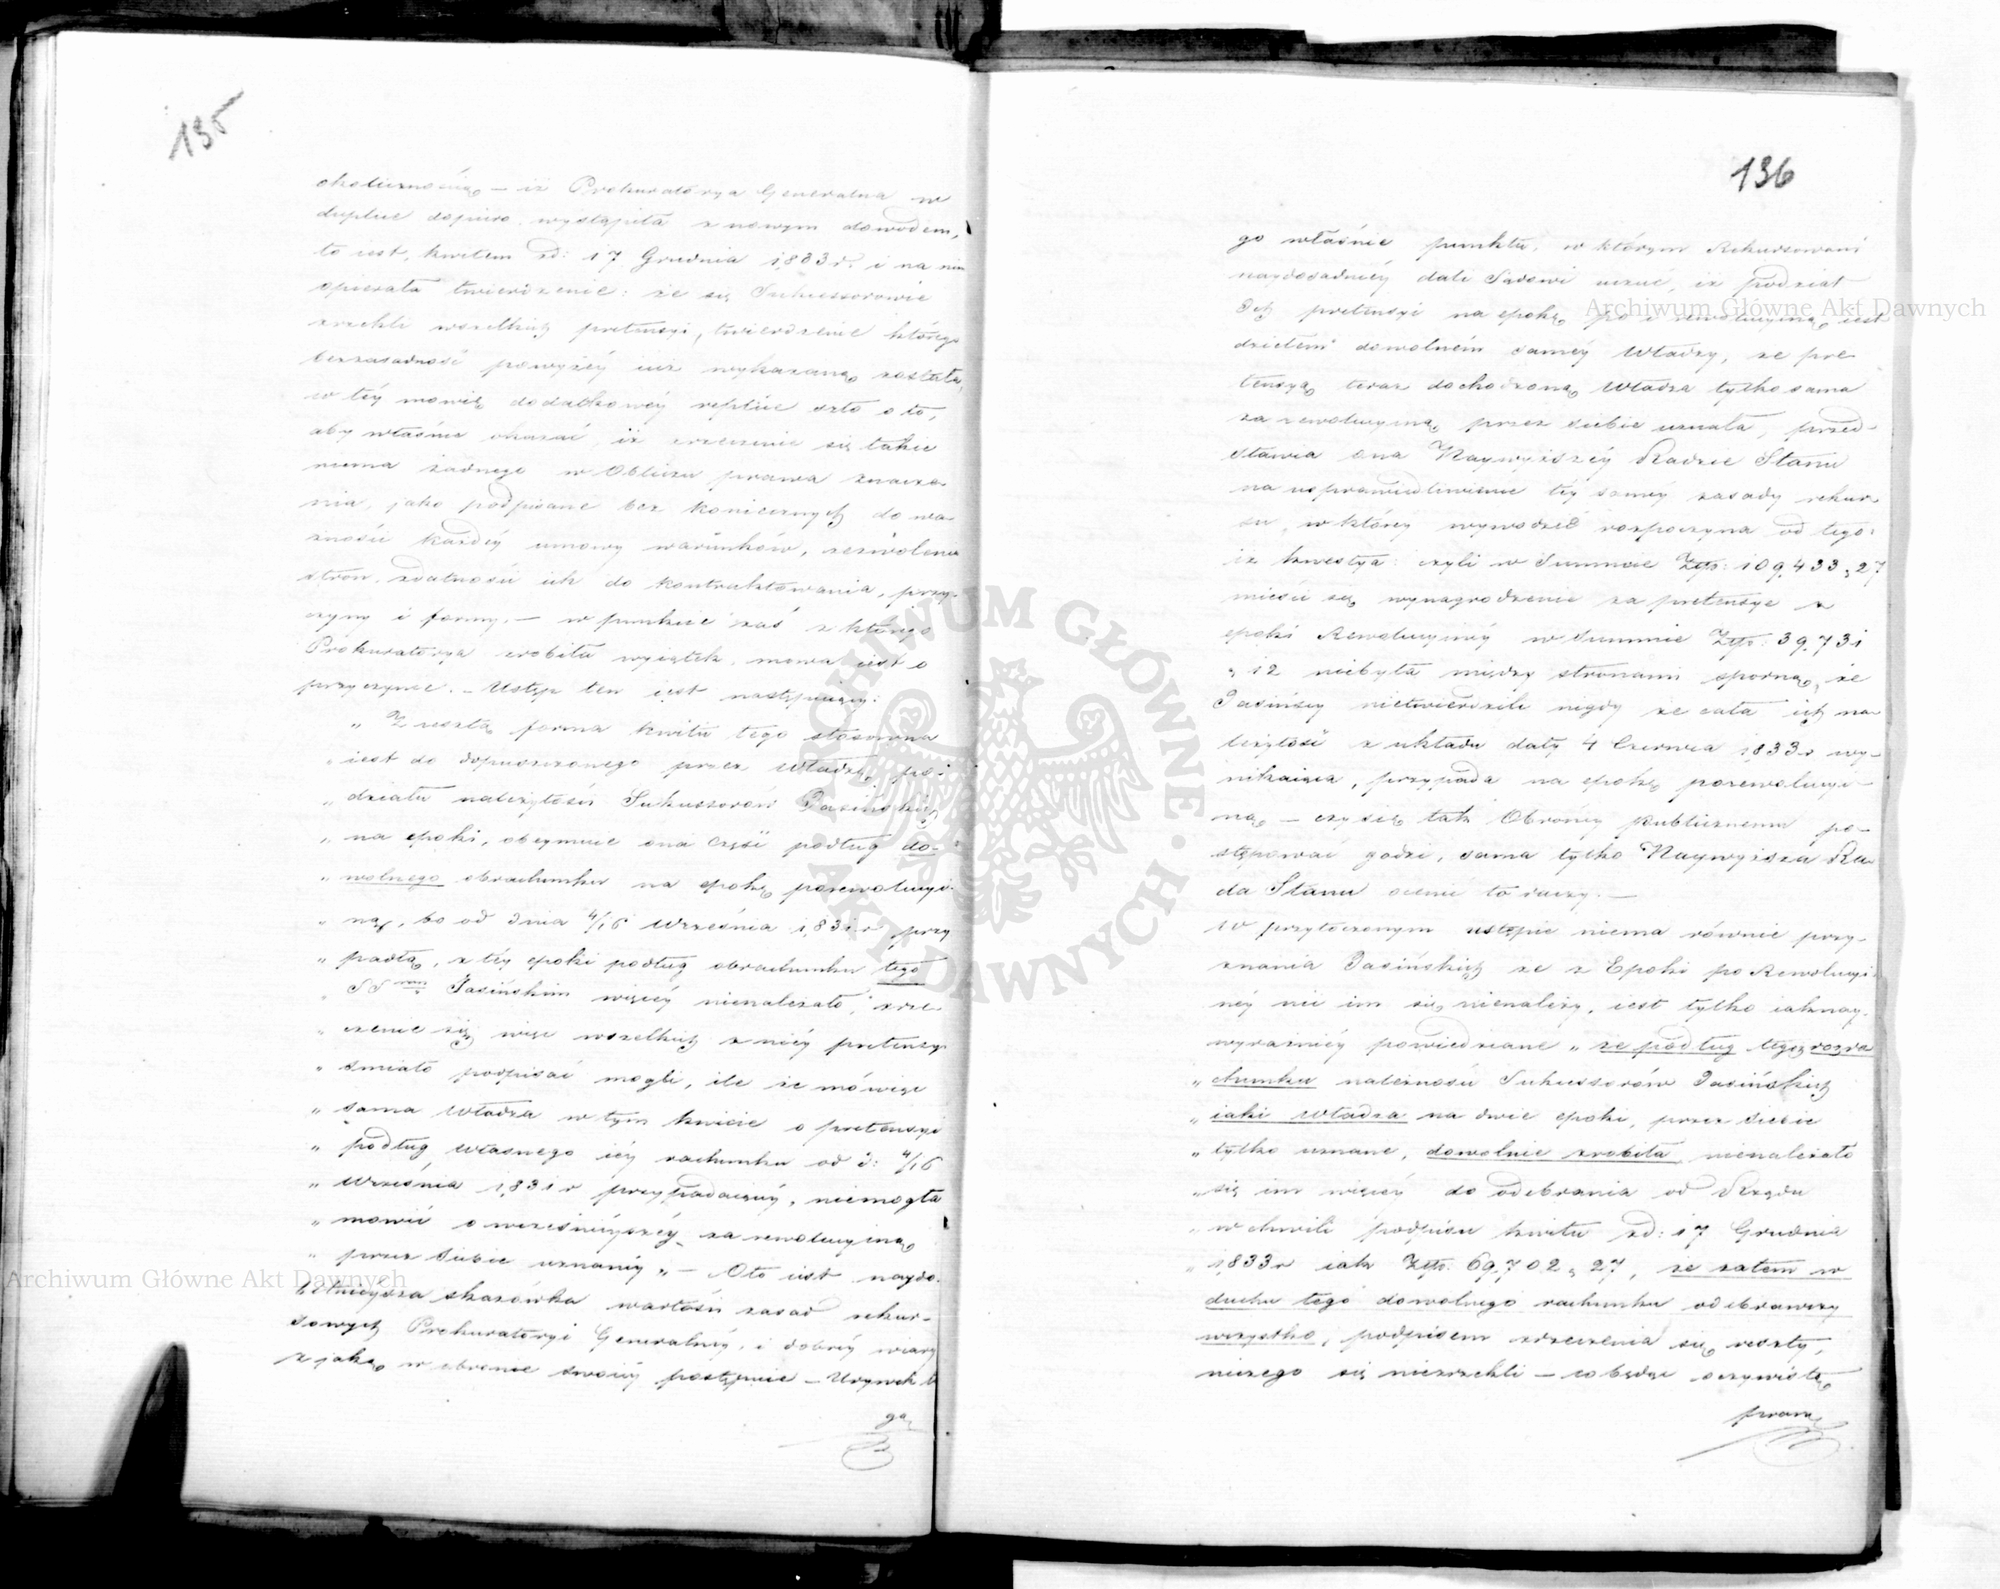 135
okolicznością – iż Prokuratorya Generalna w
duplice dopiero wystąpiła z nowym dowodem,
to iest, kwitem zd: 17 Grudnia 1833 r. i na nim
opierała twierdzenie: że się Sukcessorowie
zrzekli wszelkich pretensyi, twierdzenie którego
bezzasadność powyżéy iuż wykazaną została,
w téy mowię dodatkowéy replice szło o to,
aby właśnie okazać, iż zrzeczenie się takie
niema żadnego w Obliczu prawa znacze-
nia, jako podpisane bez koniecznych do wa-
żności każdéy umowy warunków, zezwolenia
stron, zdatności ich do kontraktowania, przy-
czyny i formy. – w punkcie zaś z którego
Prokuratorya zrobiła wyiątek, mowa iest o
przyczynie. – Ustęp ten iest następuiący:
„ Z resztą forma kwitu tego stosowna
„ iest do dopuszczonego przez Władzę po-
„ działu należytości Sukcessorów Jasińskich
„ na epoki, obeymuie ona część podług do-
„ wolnego obrachunku na epokę porewolucyi-
„ ną, bo od dnia 4/16 Września 1831 r przy
„ padłą, z téy epoki podług obrachunku tego
„ SSrom Jasińskim więcéy nienależało, zrze-
„ czenie się więc wszelkich z niéy pretensyi
„ śmiało podpisać mogli, ile że mówiąc
„ sama Władza w tym kwicie o pretensyi
„ podług własnego iéy rachunku od d: 4/16
„ Września 1831 r przypadaiącéy, niemogła
„ mowić o wcześnieyszéy za rewolucyiną
„ przez siebie uznanéy „ – Oto iest naydo-
kładnieysza skazówka wartości zasad rekur-
sowych Prokuratoryi Generalnéy, i dobréy wiary
z jaką w obronie swoiéy postępuie – Urywek te
go
Archiwum Główne Akt Dawnych
136
go właśnie punktu, w którym Rekursowani
naydosadniéy dali Sądowi uczuć, iż podział
Ich pretensyi na epokę po i rewolucyiną iest
dziełem dowolném saméy Władzy, że pre-
tensyą teraz dochodzoną Władza tylko sama
za rewolucyiną przez siebie uznała, przed-
stawia ona Naywyższéy Radzie Stanu
na usprawiedliwienie téy saméy zasady rekur-
su, w któréy wywodzić rozpoczyna od tego:
iż kwestya: czyli w Summie Złp: 109,433 „ 27
mieści się wynagrodzenie za pretensye z
epoki Rewolucyinéy w Summie Złp: 39,731
„ 12 niebyła między stronami sporną, że
Jasińscy nietwierdzili nigdy że cała ich na-
leżytość z układu daty 4 Czerwca 1833 r wy-
nikaiąca, przypada na epokę porewolucyi-
ną – czy się tak Obrońcy publicznemu po-
stępować godzi, sama tylko Naywyższa Ra-
da Stanu ocenić to raczy. –
W przytoczonym ustępie niema równie przy-
znania Jasińskich że z Epoki po Rewolucyi-
néy nic im się nienależy, iest tylko iaknay-
wyraźniéy powiedziane „ że podług tego rozra
„ chunku należności Sukcessorów Jasińskich
„ iaki Władza na dwie epoki, przez siebie
„ tylko uznane, dowolnie zrobiła, nienależało
„ się im więcéy do odebrania od Rządu
„ w chwili podpisu kwitu zd: 17 Grudnia
„ 1833 r iak Złp: 69,702 „ 27, że zatem w
duchu tego dowolnego rachunku odebrawszy
wszystko, podpisem zrzeczenia się reszty,
niczego się niezrzekli – co będąc oczywistą
prawą
Archiwum Główne Akt Dawnych
ARCHIWUM GŁÓWNE · AKT DAWNYCH ·